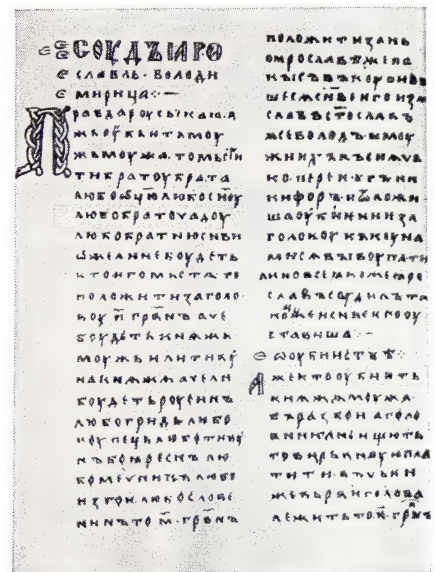 СОУДЪ ꙖРО
СЛАВЛЬ · ВОЛОДИ
МИРИЦА :·—
Правда роусьскаꙗ· а
жь оубьѥть моу
жь моужа. то мьсти
ти братоу брата
любо ѡц҃ю любо сн҃оу
любо братоучадоу
любо братню сн҃ви
ѡже ли не боудеть
кто ѥго мьстѧ. то
положити за голо
воу п҃ грв҃нъ аче
боудеть кнѧжь
моужь или тиоу
на кнѧжа аче ли
боудеть роусинъ
любо гридь любо
коупець любо тивоу
нъ боꙗрескъ лю
бо мечникъ любо
изгои. любо слове
нинъ то м҃. грв҃нъ
положити за нь
о ꙗрославѣ же па
кы съвъкоупивъ
шесѧ сн҃ве ѥго изѧ
славъ ст҃ославъ
всеволодъ и моу
жи ихъ
перенѣгъ ни
кифоръ и ѿложи
ша оубиѥниѥ за
головоу нъ коуна
ми сѧ выкоупати
а ино все ꙗкоже ꙗро
славъ соудилъ та
коже и сн҃ве ѥго оу
ставиша :—
ѡ оубииствѣ :·
Аже кто оубиѥть
кнѧжа моужа
въ разбои а голо
вника не ищють
то вирьвноую пла
тити. въ чьѥи
же вьрви голова
лежить то п҃. грв҃нъ